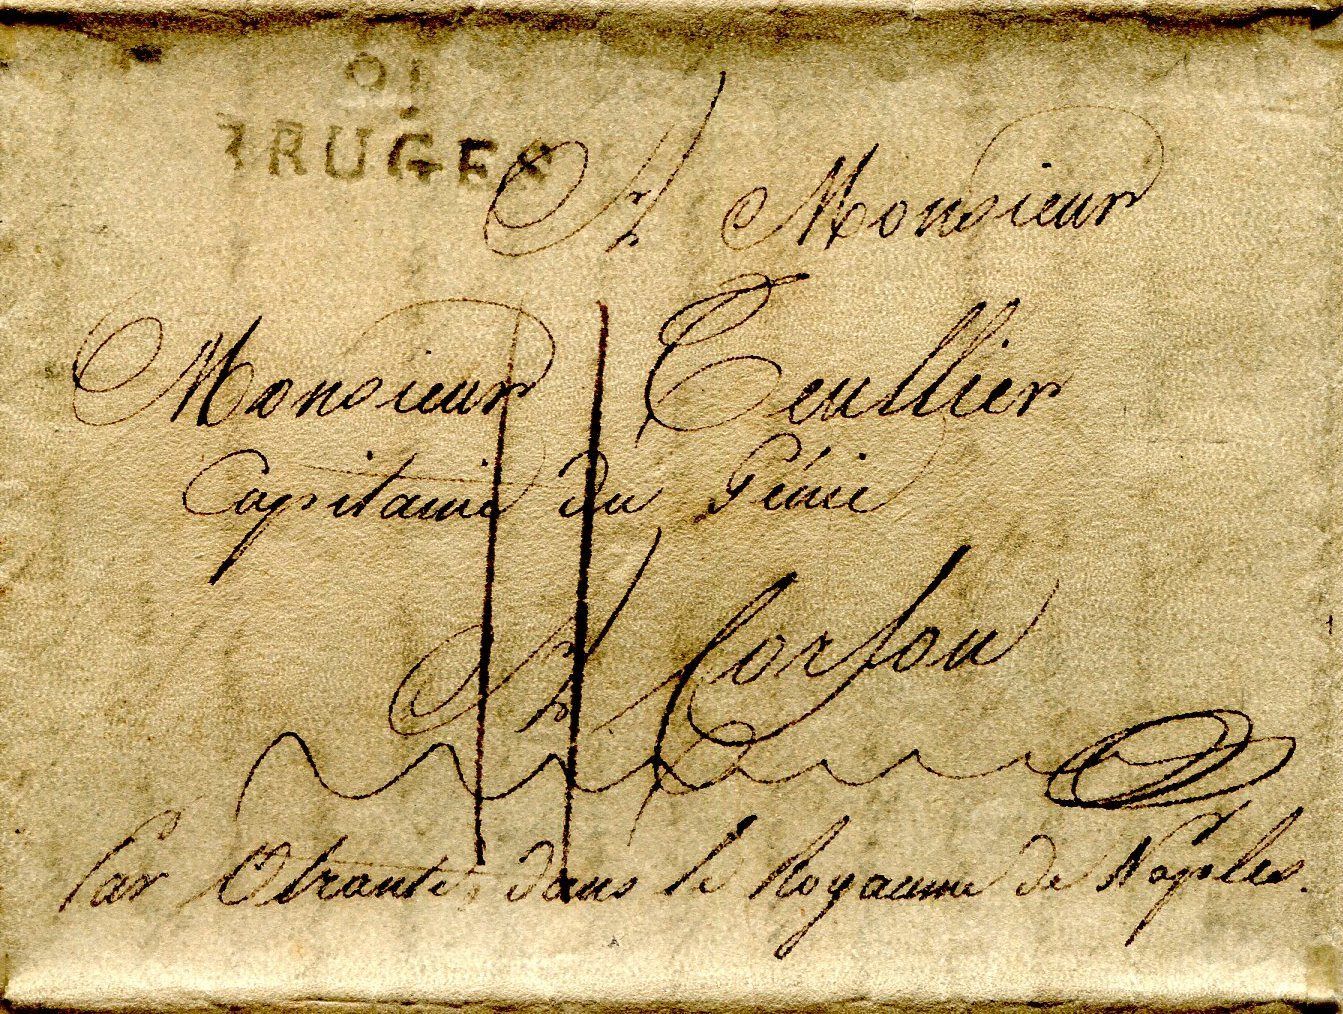 91
BRUGES
A Monsieur
Monsieur Teullier
Capitaine du Génie
A Corfou
Par Otrante, dans le Royaume de Naples.